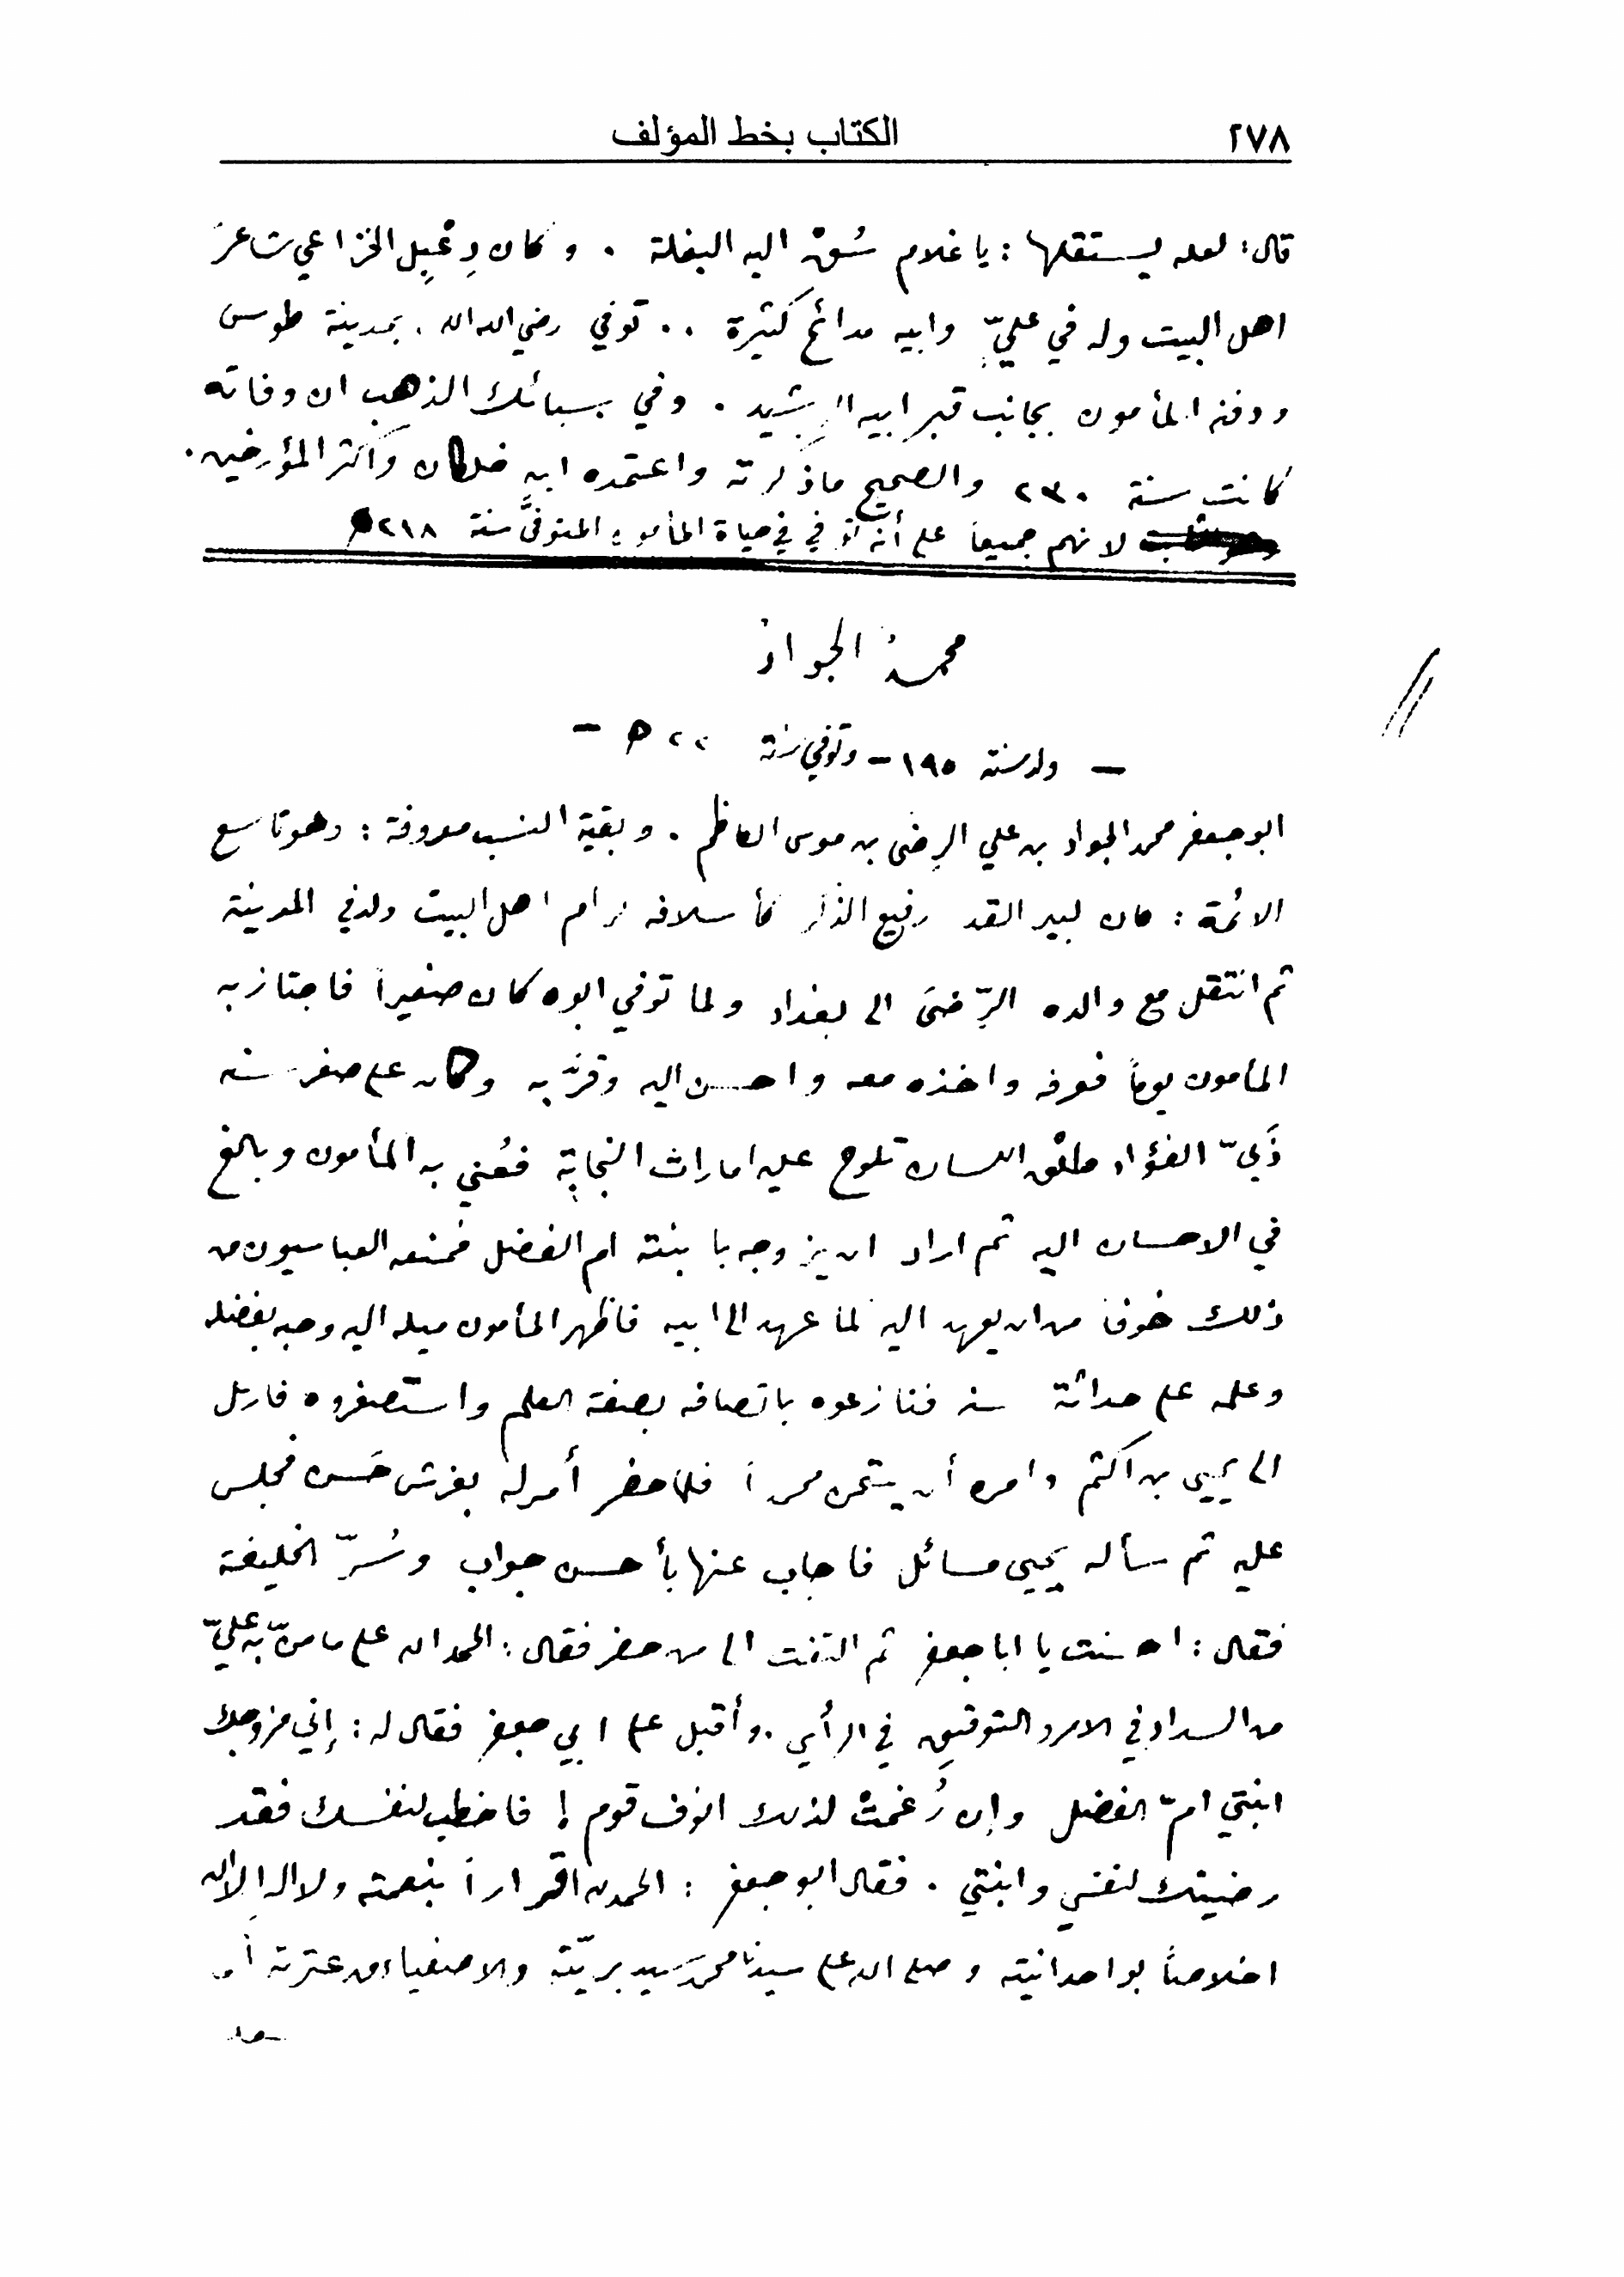 ٢٧٨
الكتاب بخط المؤلف
قال: لعله يستقلها: يا غلام سُقْ اليه البغلة . و كان دِعْبِل الخزاعي شاعرَ
اهل البيت وله في عليّ وابيه مدائح كثيرة .. توفي رضي الله . بمدينة طوس
ودفنه المأمون بجانب قبر ابيه الرشيد . وفي سبائك الذهب ان وفاته
كانت سنة ٢٣٠ والصحيح ماذكرته واعتمده ابن خلكان واكثر المؤرخين .
لانهم جميعاً على أنه توفي في حياة المأمون المتوفَّى سنة ٢١٨ه
محمدُ الجوادُ
— ولد سنة ١٩٥ – وتوفي سنة ٢٢٠ ه –
ابو جعفر محمد الجواد بن علي الرضى بن موسى الكاظم . وبقية النسب معروفة : وهو تاسع
الائمة : كان كبير القدر رفيع الذكر كأسلافه كرام اهل البيت ولد في المدينة
ثم انتقل مع والده الرّضىَ الى بغداد ولما توفي ابوه كان صغيراً فاجتاز به
المأمون يوماً فعرفه واخذه معه واحسن اليه وقرَّبه وكان على صغر سنه
ذَكيّ الفؤاد طلْق اللسان تلوح عليه امارات النجابة فعُني به المأمون وبالغ
في الاحسان اليه ثم اراد ان يزوجه بابنته ام الفضل فمنعه العباسيون من
ذلك خوفاً من ان يعهد اليه كما عهد الى ابيه فاظهر المأمون ميله اليه وحبه بفضله
وعلمه على حداثة سنه فنازعوه باتصافه بصفة العلم واستصغروه فارسل
الى يحيى بن اكثم وامره أن يمتحن محمداً فلما حضر أمر له بفرش حَسن فجلس
عليه ثم سأله يحيى مسائل فاجاب عنها بأحسن جواب وسُرّ الخليفة
فقال : احسنت يا ابا جعفر ثم التفت الى من حضر فقال : الحمد لله على ما منّ به عليّ
من السداد في الامر والتوفيق في الرأي . وأقبل على ابي جعفر فقال له : إني مزوجك
ابنتي امّ الفضل وإن رُغمتْ لذلك انوف قوم ! فاخطب لنفسك فقد
رضيتك لنفسي وابنتي . فقال ابو جعفر : الحمد لله اقراراً بنعمته ولا اله الا الله
اخلاصاً بواحدانيته وصلى الله على سيدنا محمد سيد بريّته والاصفياء من عترته أما